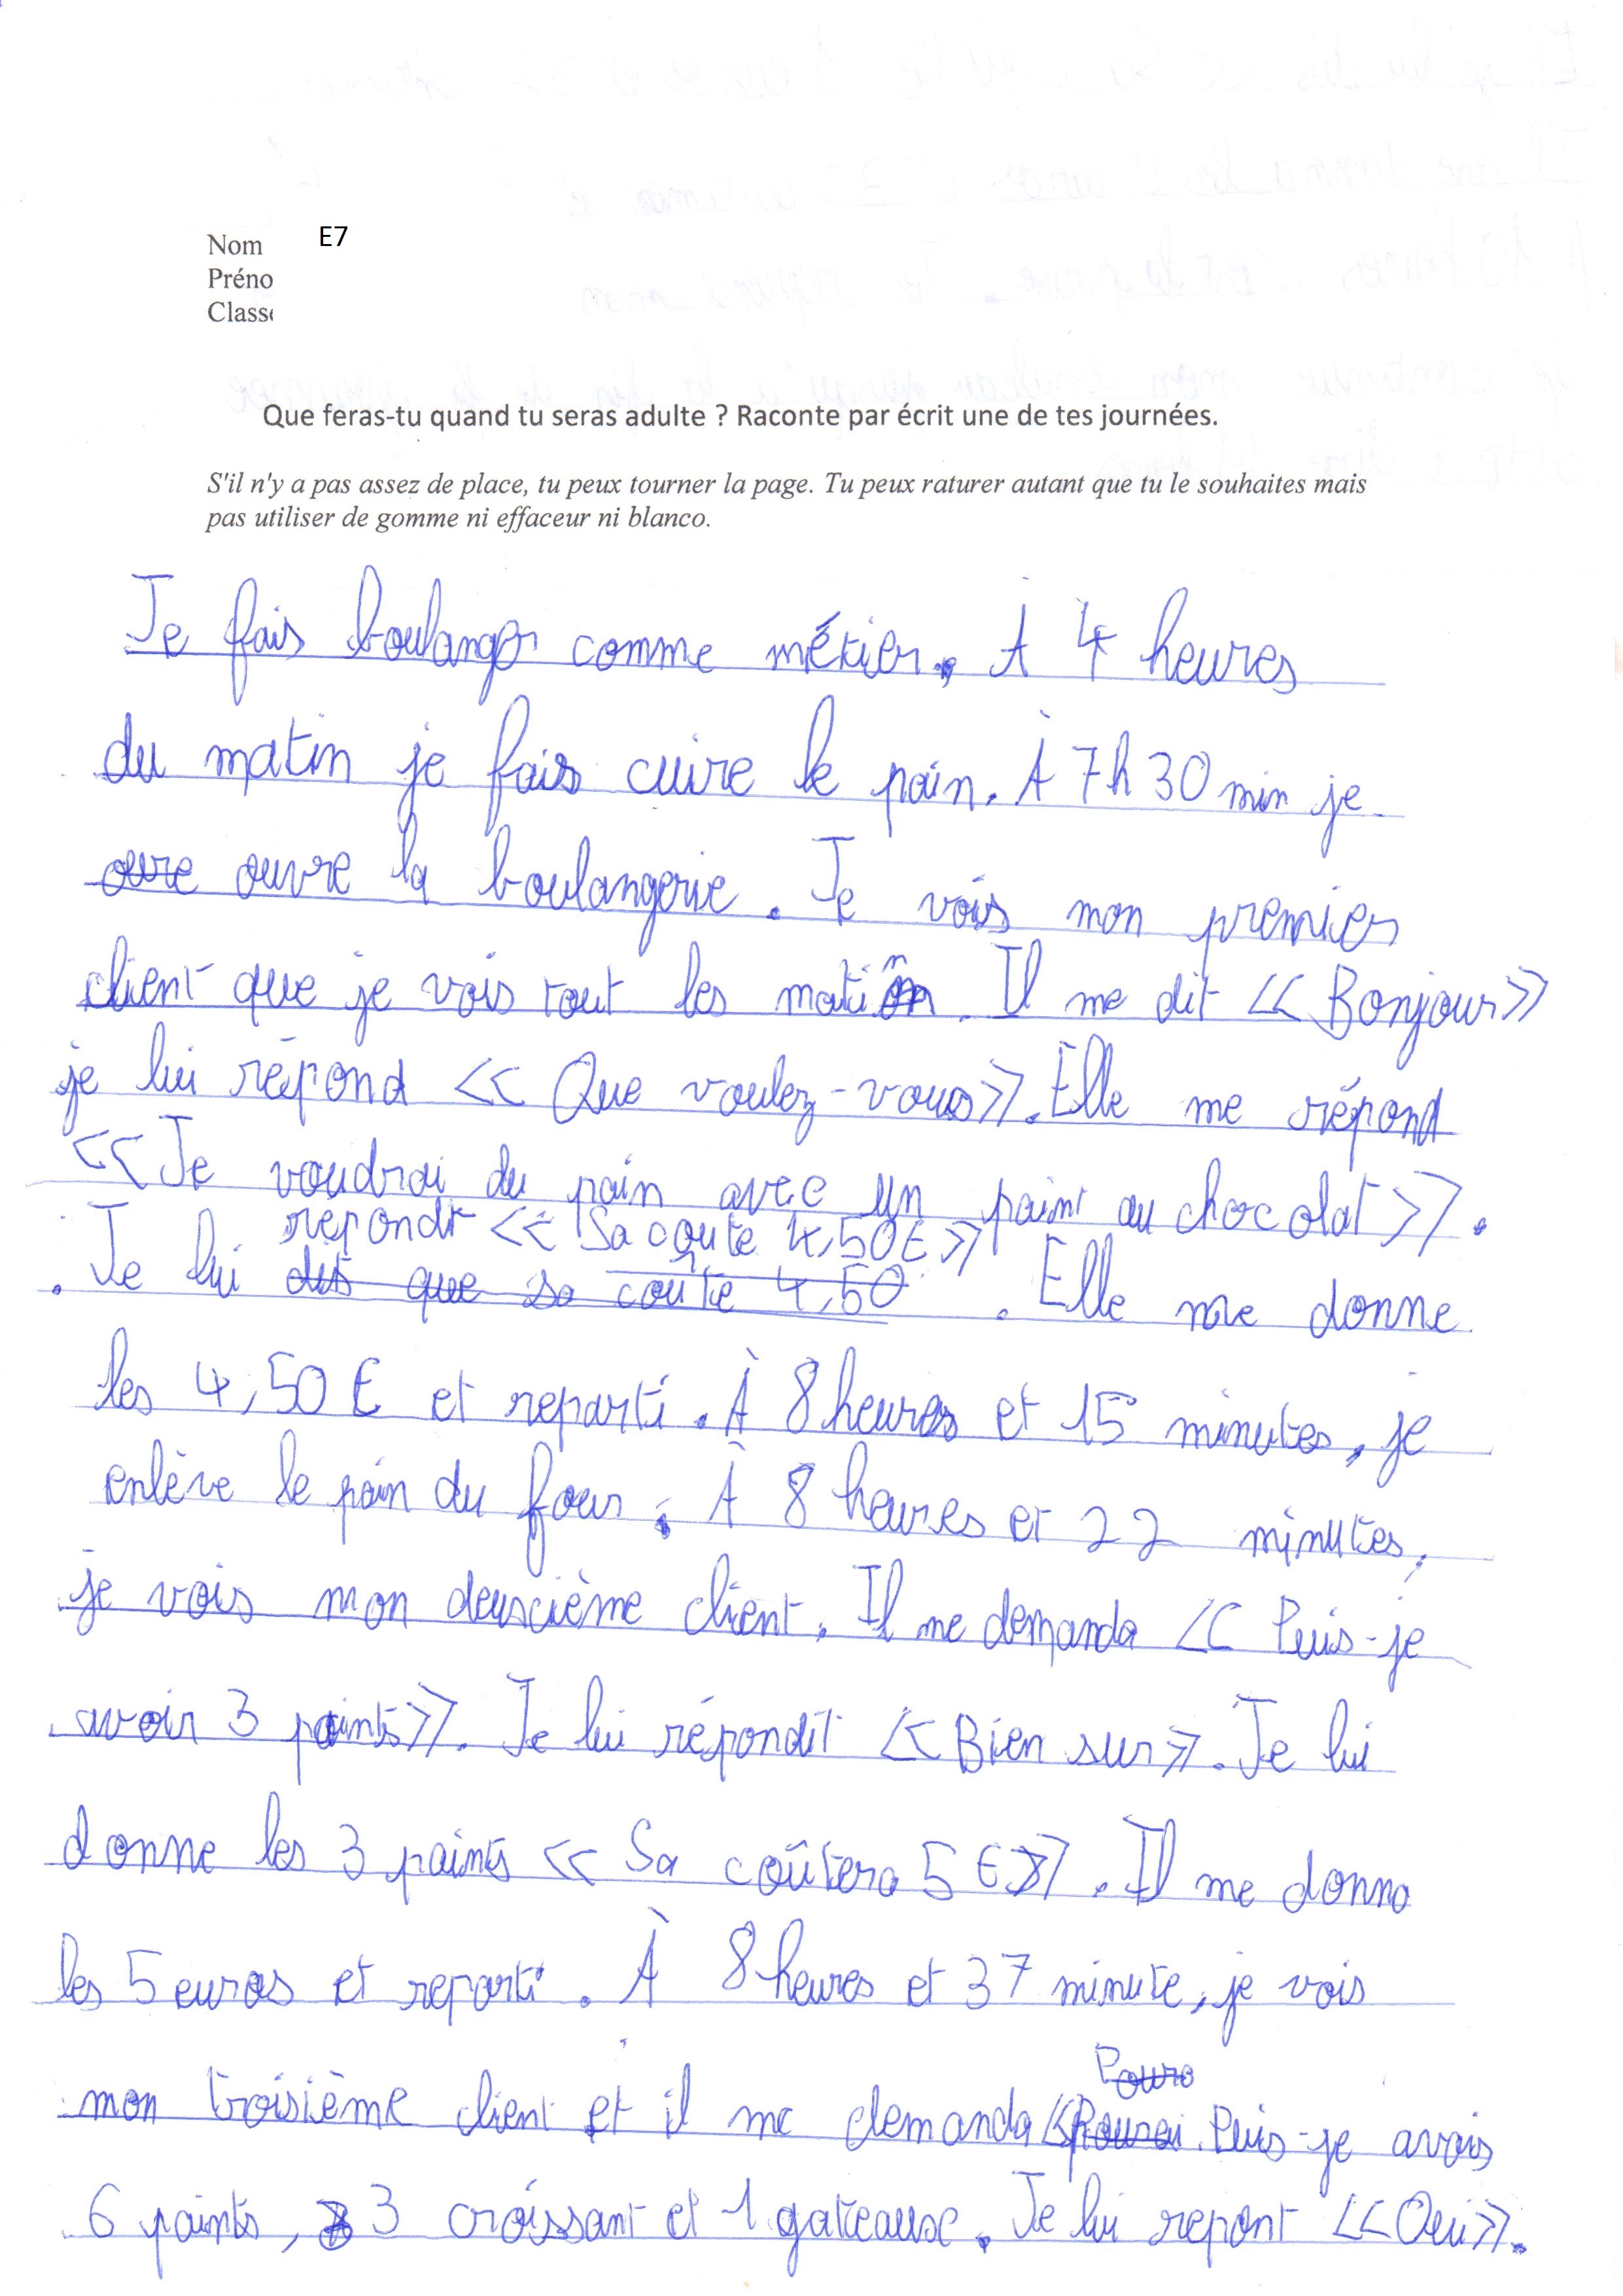 E7
Nom
Préno
Classe
Que feras-tu quand tu seras adulte ? Raconte par écrit une de tes journées.
S'il n'y a pas assez de place, tu peux tourner la page. Tu peux raturer autant que tu le souhaites mais
pas utiliser de gomme ni effaceur ni blanco.
Je fais boulanger comme métier. À 4 heures
du matin je fais cuire le pain. À 7h30 min je
ouvre la boulangerie. Je vois mon premier
client que je vois tout les matin. Il me dit << Bonjour>>
je lui répond << Que voulez-vous>>. Elle me répond
<<Je voudrai du pain avec un paint au chocolat>>.
repondt << Sa coute 4,50€>>
. Je lui dis que sa coûte 4,50 . Elle me donne
les 4,50 € et reparti. À 8 heures et 15 minutes, je
enlève le pain du four. À 8 heures et 22 minutes,
je vois mon deuscième client. Il me demanda << Puis-je
avoir 3 paints>>. Je lui répondit <<Bien sur>>. Je lui
donne les 3 paints << Sa coûtera 5 €>>. Il me donna
les 5 euros et reparti. À 8 heures et 37 minute, je vois
Poure
mon troisième client et il me demanda << Puis-je avois
6 paints, 3 croissant et 1 gateause. Je lui repont <<Oui>>.